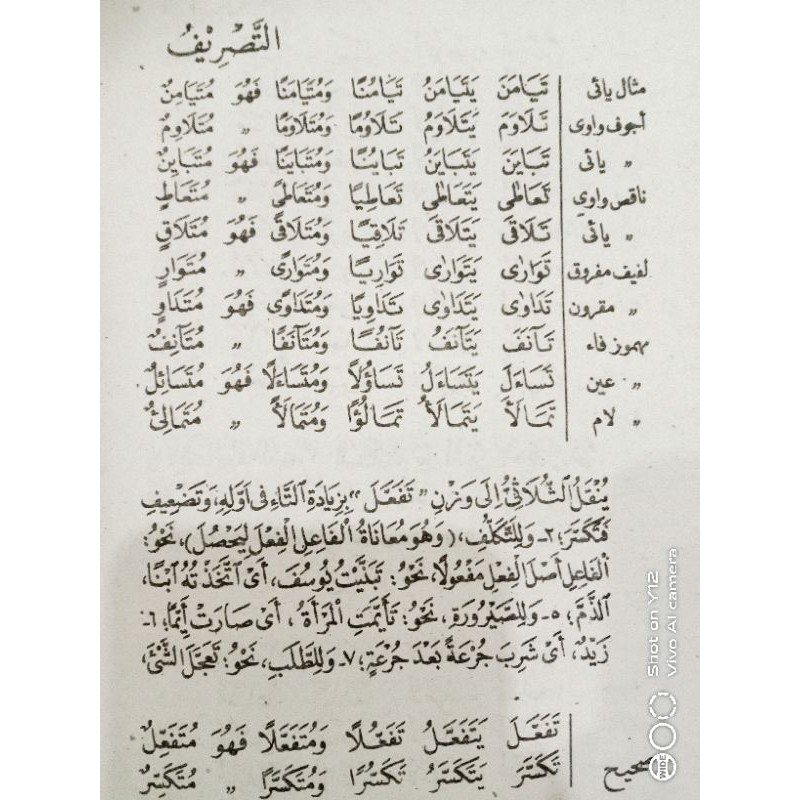 التَّصْرِيْفُ
مثال يائى تَيَامَنَ يَتَيَامَنُ تَيَامُنًا وَمُتَيَامَنًا فَهُوَ مُتَيَامِنٌ
اجوف واوى تَلَاوَمَ يَتَلَاوَمُ تَلَاوُمًا وَمُتَلَاوَمًا " مُتَلَاوِمٌ
" يائى تَبَايَنَ يَتَبَايَنُ تَبَايُنًا وَمُتَبَايَنًا فَهُوَ مُتَبَايِنٌ
ناقص واوي تَعَاطٰى يَتَعَاطٰى تَعَاطِيًا وَمُتَعَاطًى " مُتَعَاطٍ
" يائى تَلَاقَى يَتَلَاقَى تَلَاقِيًا وَمُتَلَاقًى فَهُوَ مُتَلَاقٍ
لفيف مفروق تَوَارٰى يَتَوَارٰى تَوَارِيًا وَمُتَوَارًى " مُتَوَارٍ
" مقرون تَدَاوٰى يَتَدَاوٰى تَدَاوِيًا وَمُتَدَاوًى فَهُوَ مُتَدَاوٍ
مهموز فاء تَآنَفَ يَتَآنَفُ تَآنُفًا وَمُتَآنَفًا " مُتَآنِفٌ
" عين تَسَاءَلَ يَتَسَاءَلُ تَسَاؤُلًا وَمُتَسَاءَلًا فَهُوَ مُتَسَائِلٌ
" لام تَمَالَأَ يَتَمَالَأُ تَمَالُؤًا وَمُتَمَالَأً " مُتَمَالِئٌ
يُنْقَلُ الثُّلَاثِىُّ إِلَى وَزْنِ "تَفَعَّلَ" بِزِيَادَةِ التَّاءِ فِى أَوَّلِهِ، وَتَضْعِيفِ
فَتَكَسَّرَ؛ ٢- وَلِلتَّكَلُّفِ، (وَهُوَ مُعَانَاةُ الْفَاعِلِ الْفِعْلَ لِيَحْصُلَ)، نَحْوُ:
الْفَاعِلِ أَصْلَ الْفِعْلِ مَفْعُولًا، نَحْوُ: تَبَنَّيْتُ يُوسُفَ، أَىْ اتَّخَذْتُهُ ابْنًا،
الذَّمَّ؛ ٥- وَلِلصَّيْرُورَةِ، نَحْوُ: تَأَيَّمَتِ الْمَرْأَةُ، أَىْ صَارَتْ أَيِّمًا؛ ٦-
زَيْدٌ، أَىْ شَرِبَ جُرْعَةً بَعْدَ جُرْعَةٍ؛ ٧- وَلِلطَّلَبِ، نَحْوُ: تَعَجَّلَ الشَّىْءَ،
تَفَعَّلَ يَتَفَعَّلُ تَفَعُّلًا وَمُتَفَعَّلًا فَهُوَ مُتَفَعِّلٌ
صحيح تَكَسَّرَ يَتَكَسَّرُ تَكَسُّرًا وَمُتَكَسَّرًا " مُتَكَسِّرٌ
Shot on Y12
Vivo AI camera
WIDE